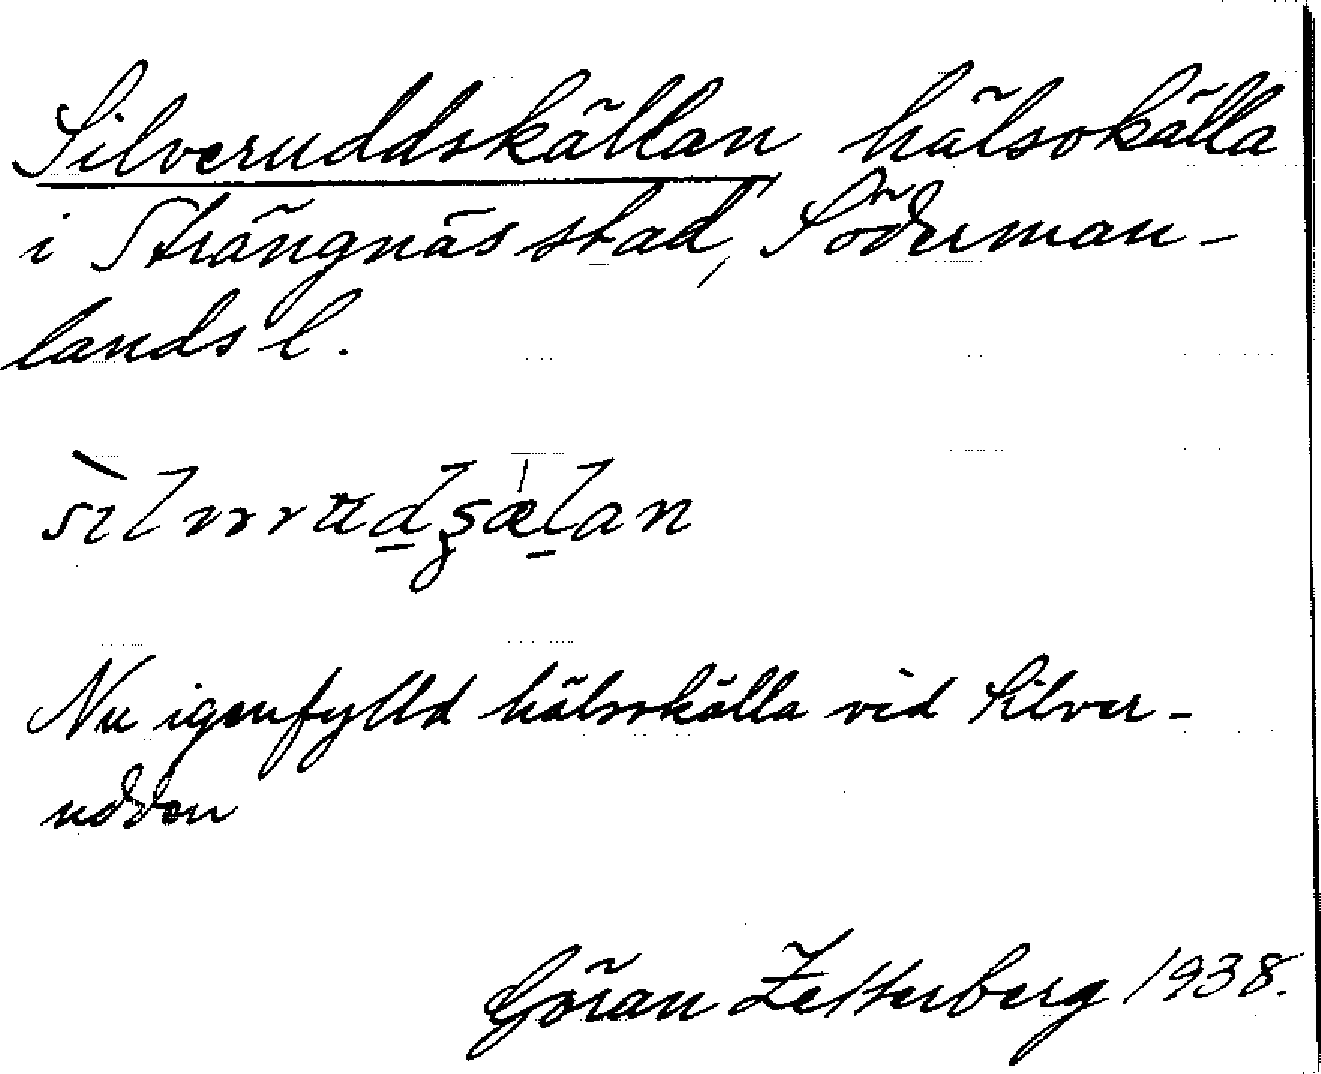 Silveruddskällan hälsokälla
i Strängnäs stad, Söderman-
lands l.
Nu igenfylld hälsokälla vid Silver-
udden
Göran Zetterberg 1938.